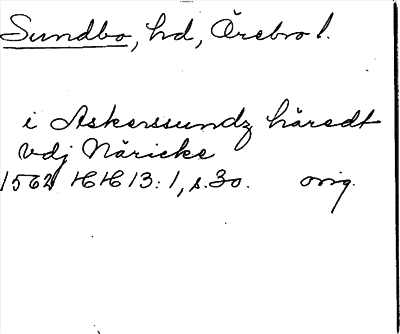 Sundbo, hd, Örebro l.
i Askerssundz häredt
vdj Näricke
1562 HH 13:1, s. 30. orig.